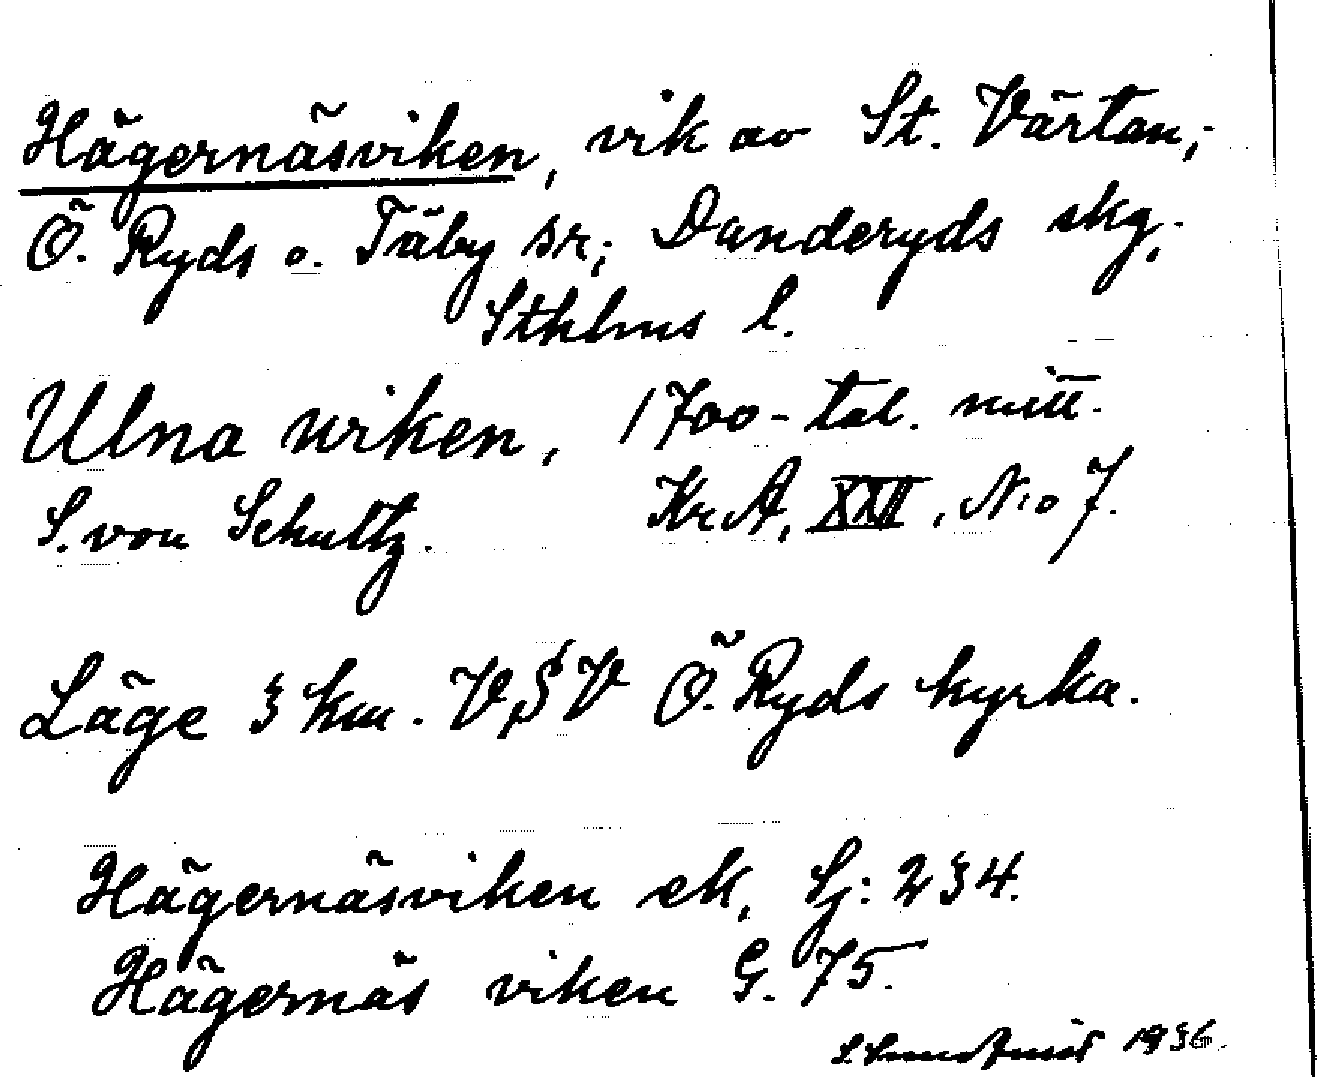 Hägernäsviken, vik av St. Värtan;
Ö. Ryds o. Täby sr; Danderyds skg,
Sthlms l.
Ulna wiken, 1700-tal. mitt.
S. von Schultz. KrA, XXII, No 7.
Läge 3 km. VSV Ö. Ryds kyrka.
Hägernäsviken ek, Lj: 234.
Hägernäs viken G. 75.
1936